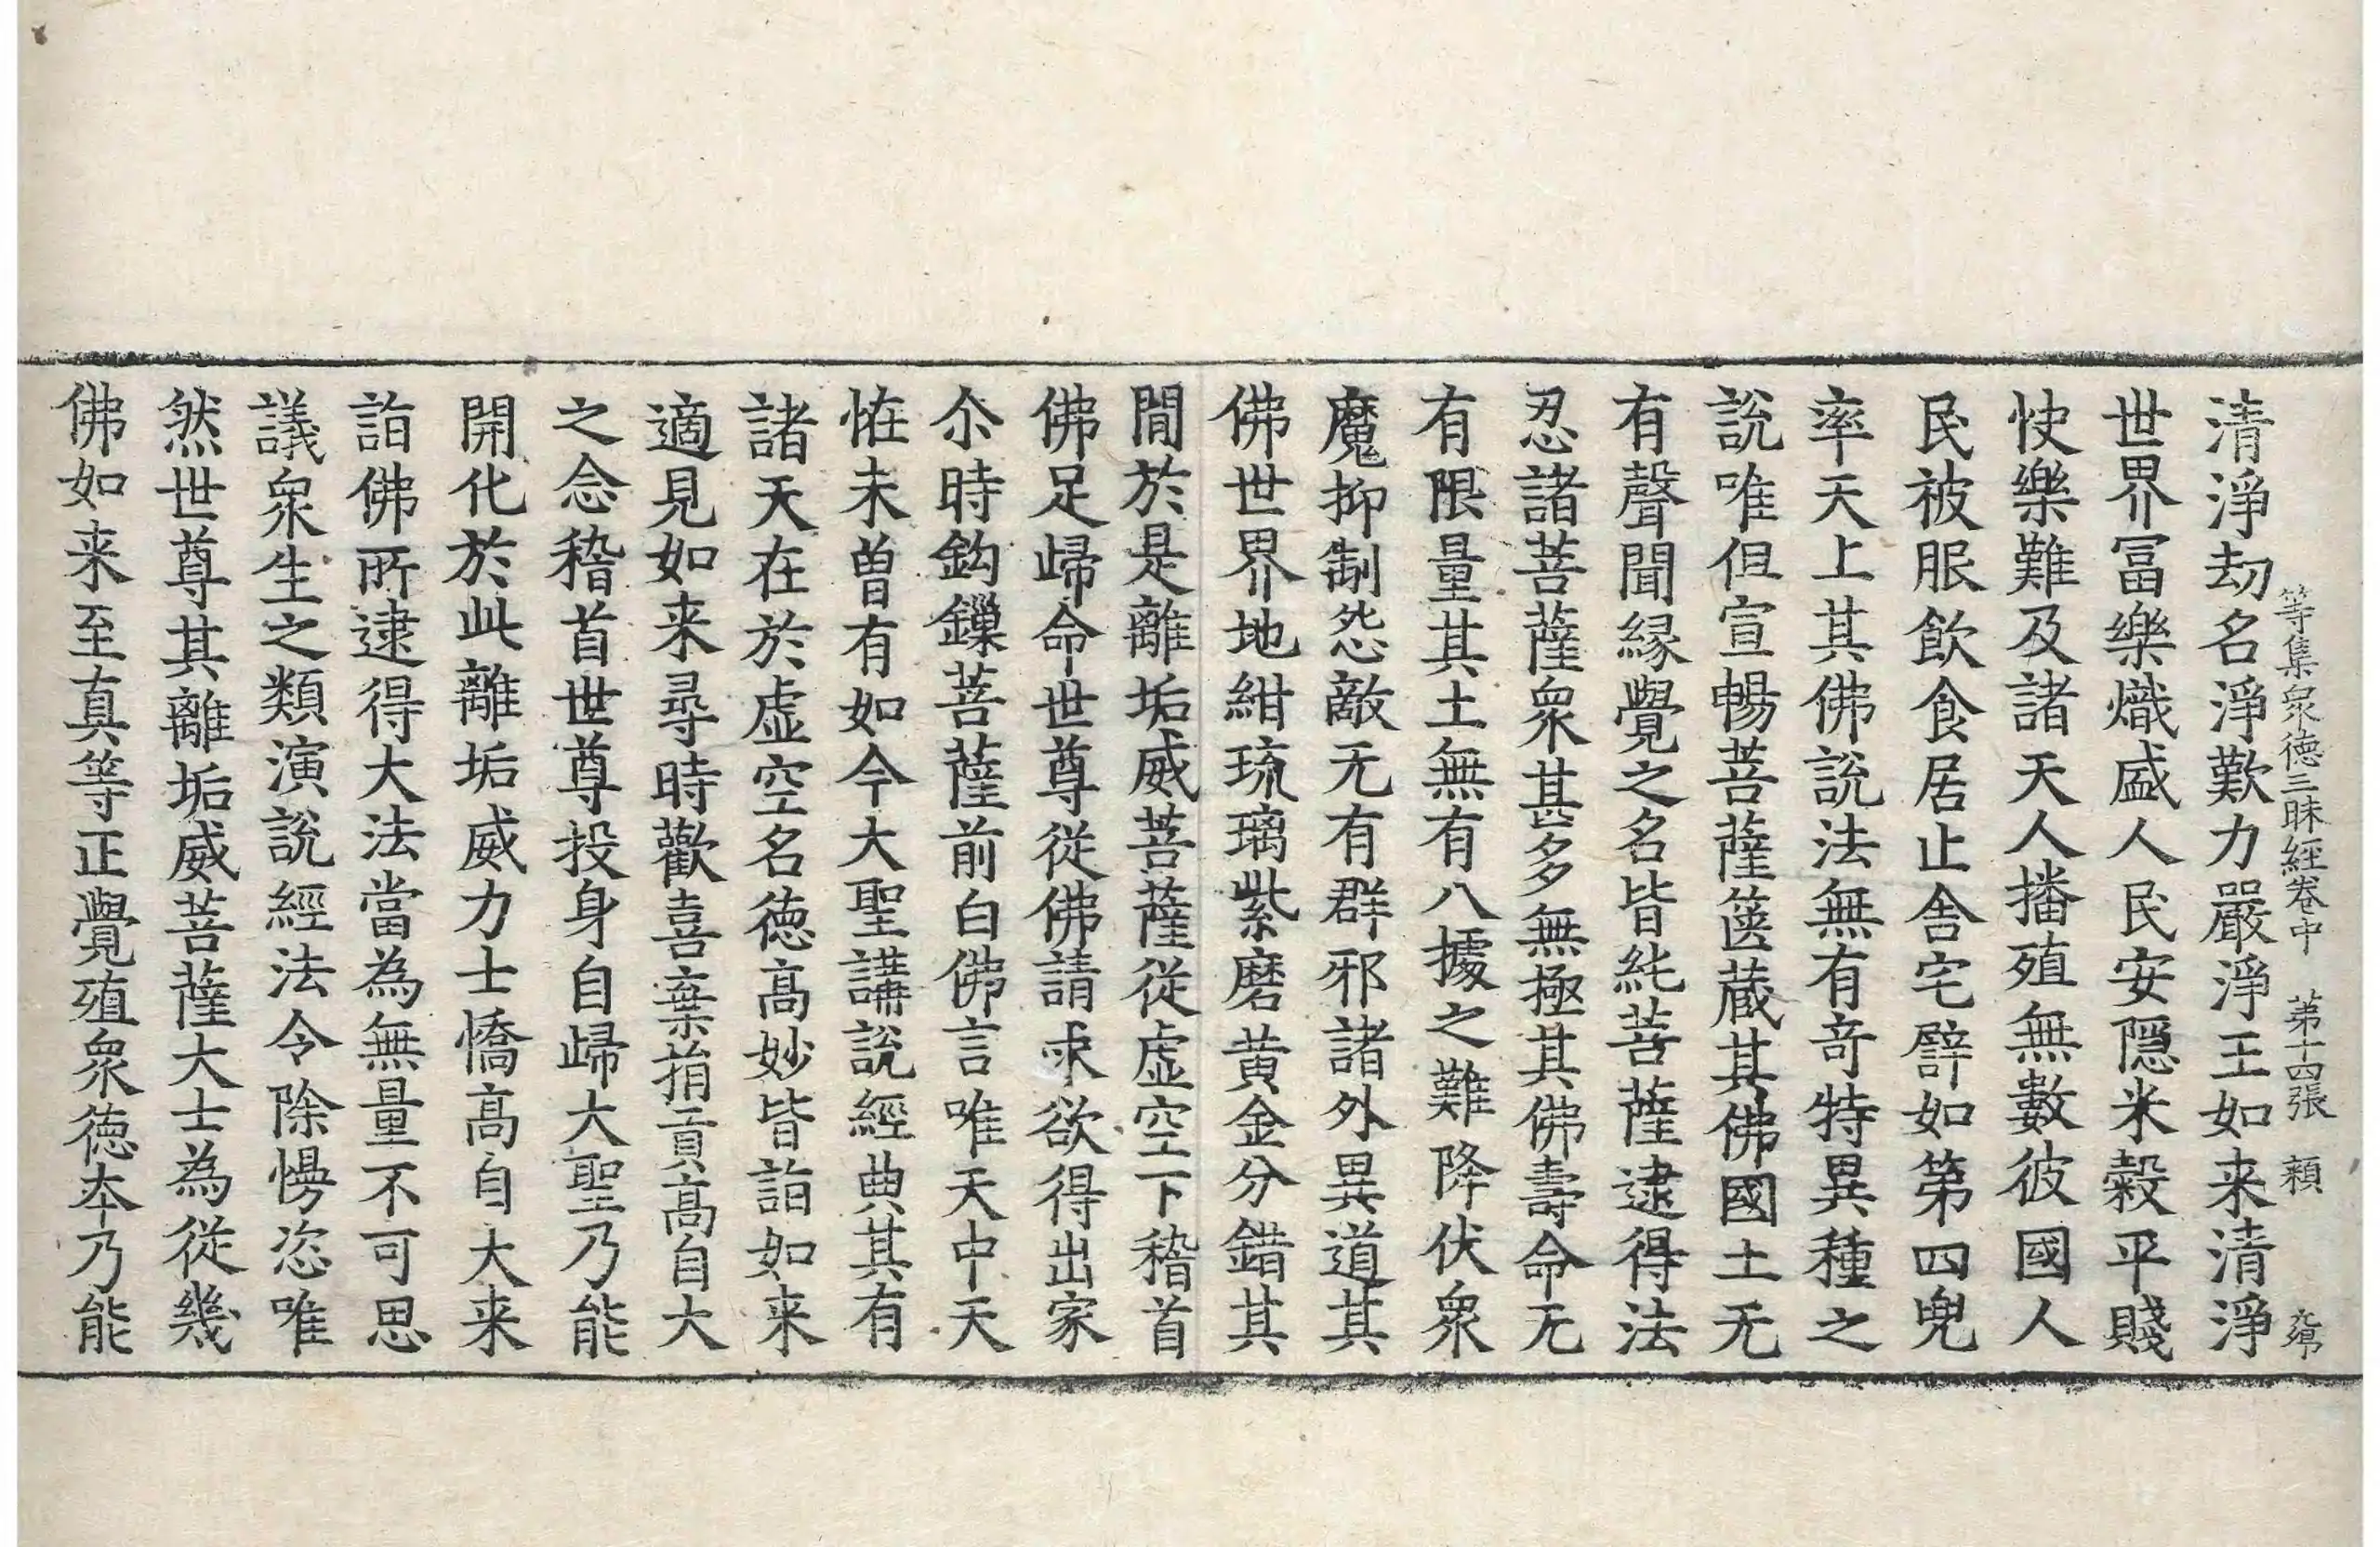 清淨劫名淨歎力嚴淨王如来清淨
等集衆德三昧經卷中　第十四張　頪
世界冨樂熾盛人民安隱米糓平賤
快樂難及諸天人播殖無數彼國人
民被服飲食居止舎宅譬如第四兜
率天上其佛說法無有竒特異種之
說唯但宣暢菩薩篋蔵其佛國土无
有聲聞縁覺之名皆純菩薩逮得法
忍諸菩薩衆甚多無極其佛壽命无
有限量其土無有八㩀之難降伏衆
魔抑制怨敵无有群邪諸外異道其
佛世界地紺琉璃紫磨黄金分錯其
間於是離垢威菩薩從虛空下稽首
佛足歸命世尊從佛請求欲得出家
尒時鈎鏁菩薩前白佛言唯天中天
恠未曽有如今大聖講說經典其有
諸天在於虛空名德髙妙皆詣如来
適見如来尋時歡喜棄捐貢髙自大
之念稽首世尊投身自歸大聖乃能
開化於此離垢威力士憍髙自大来
詣佛所逮得大法當為無量不可思
議衆生之類演說經法令除慢恣唯
然世尊其離垢威菩薩大士為從幾
佛如来至真等正覺殖衆德夲乃能